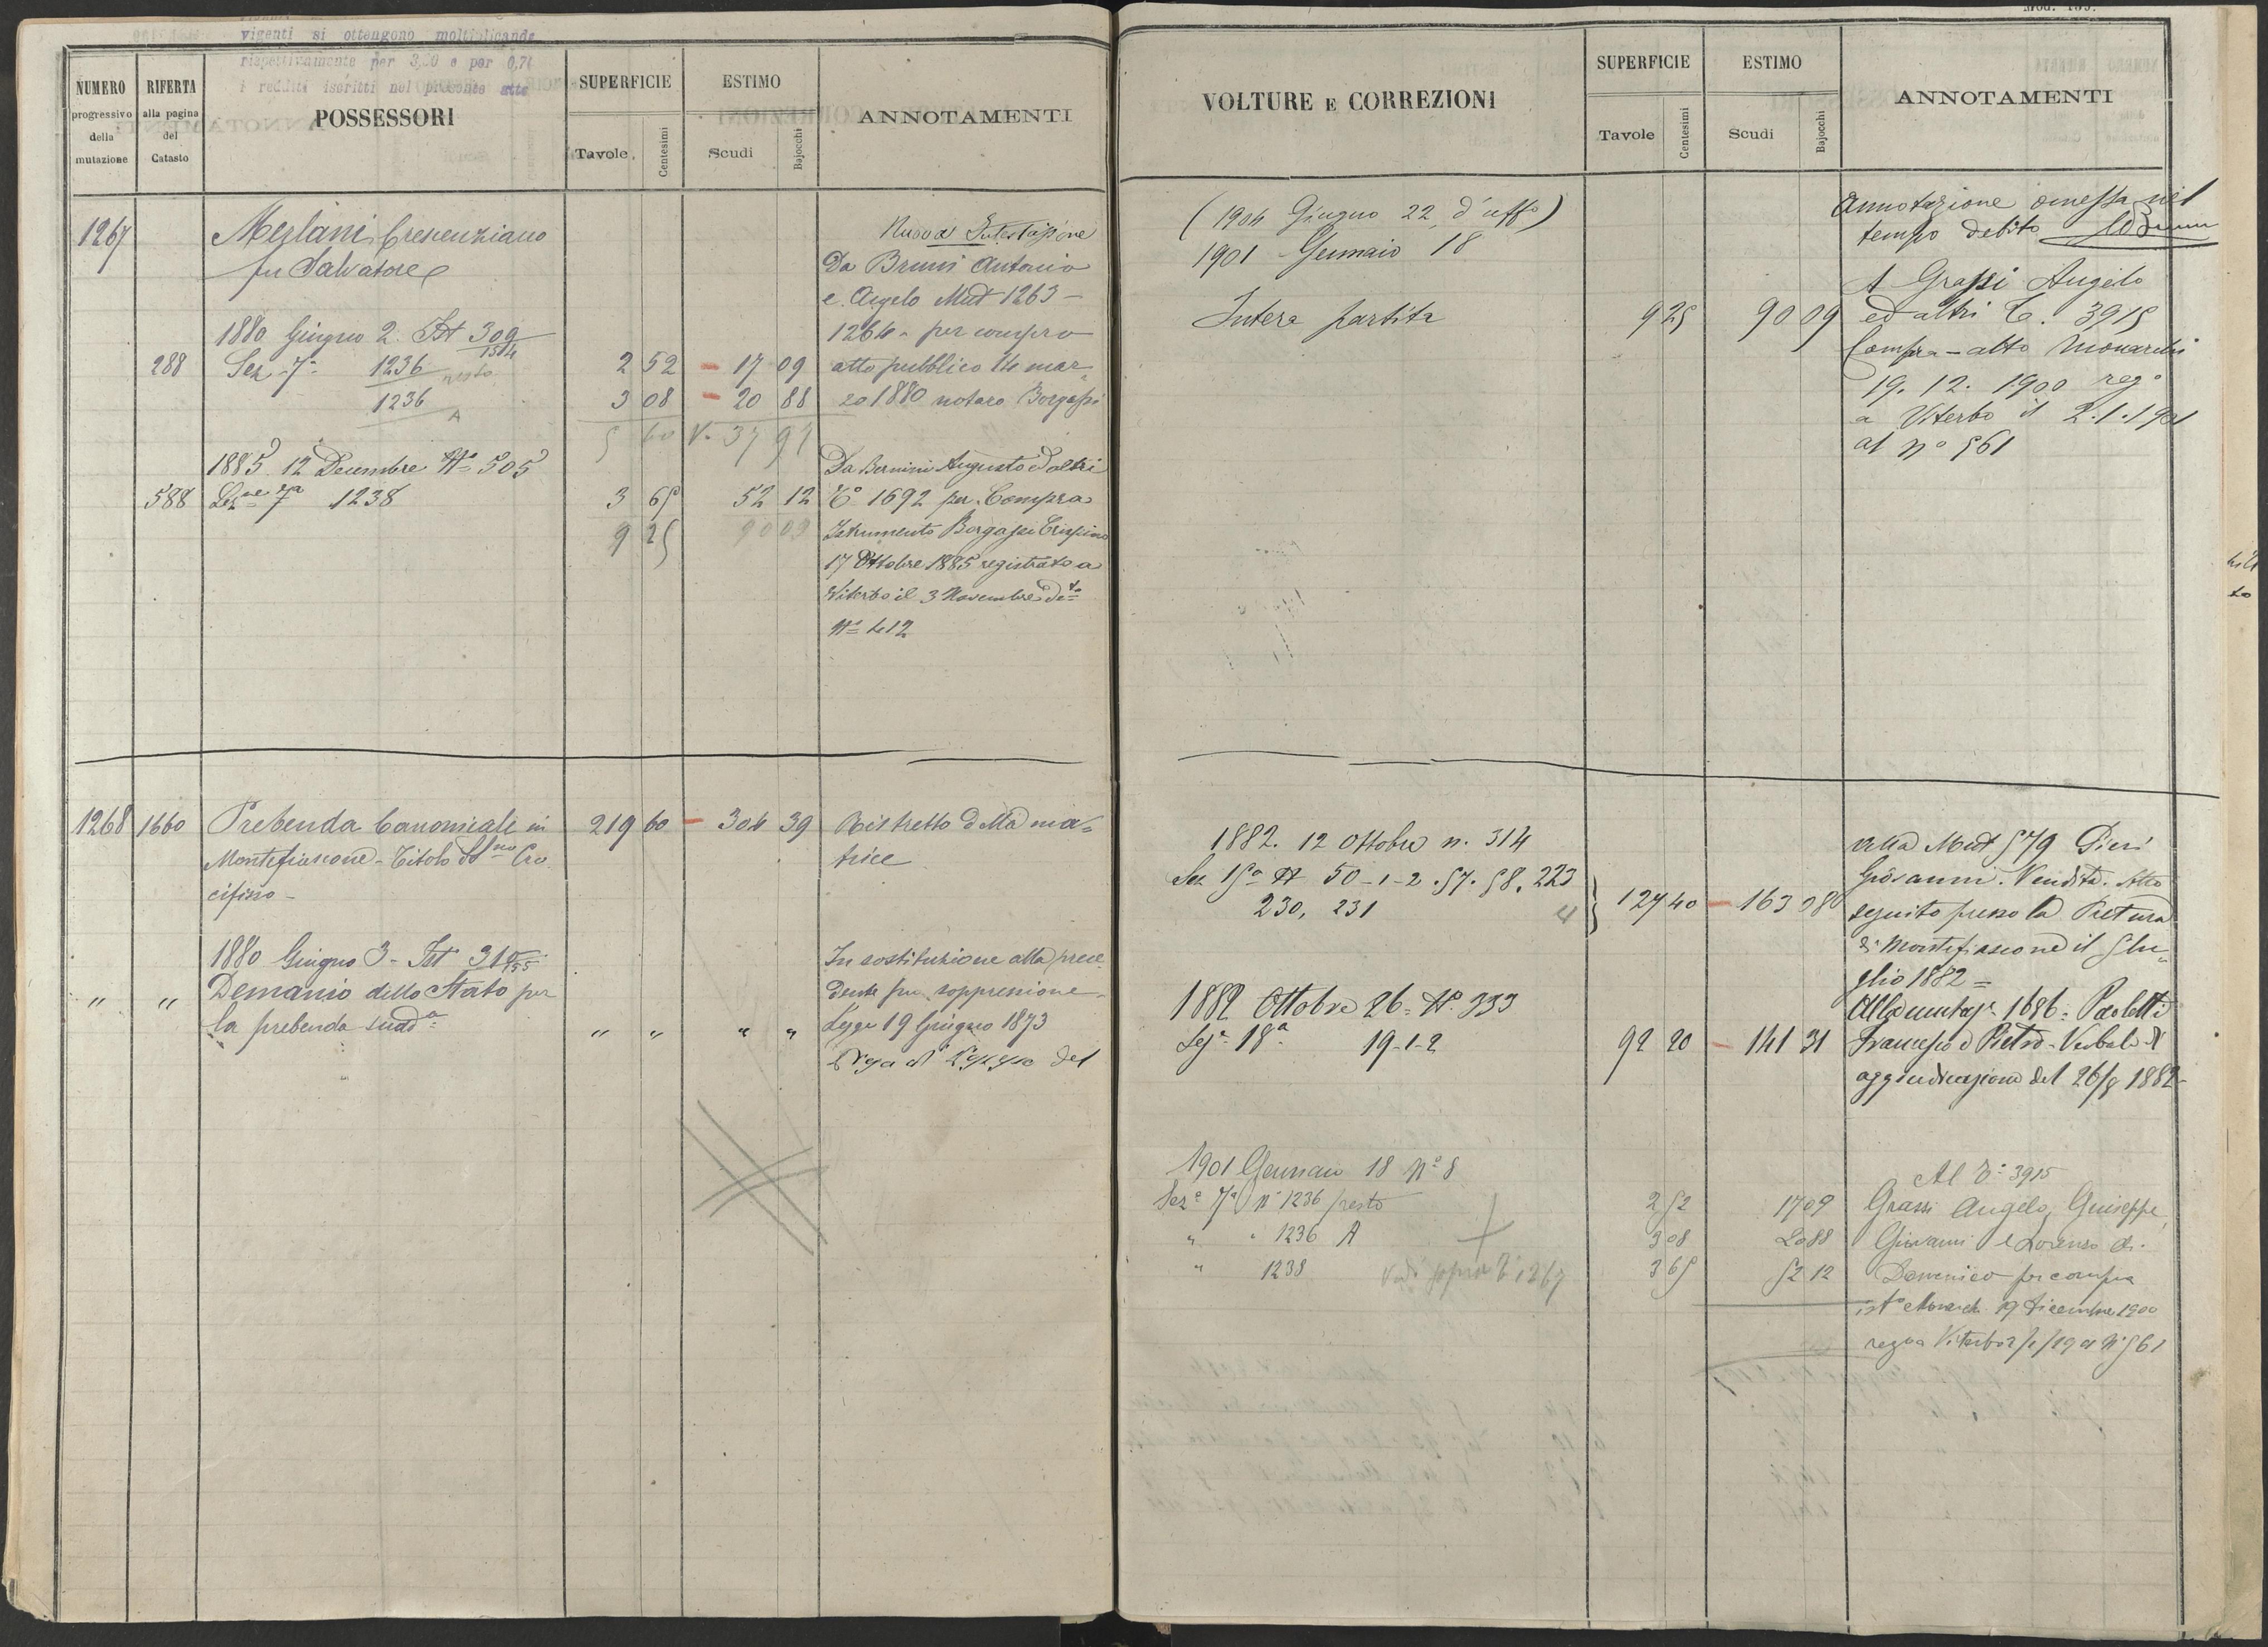 vigenti si ottengono moltiplicando
rispettivamente per 3,00 e per 0,71
i redditi iscritti nel presente atto
NUMERO
progressivo
della
mutazione
RIFERTA
alla pagina
del
Catasto
POSSESSORI
SUPERFICIE
Tavole
Centesimi
ESTIMO
Scudi
Bajocchi
ANNOTAMENTI
1267
Merlani Crescenziano
fu Salvatore
1880 Giugno 2. Ist 309
1514
288 Sez 7ª 1236 resto 2 52 17 09
1236 A 3 08 20 88
5 60 37 97
1885 12 Decembre Nº 505
588 Sezne 7ª 1238 3 65 52 12
9 25 90 09
Nuova Intestazione
Da Bruni Antonio
e Angelo Mut 1263 -
1264 - per compra
atto pubblico 14 mar-
zo 1880 notaro Borgassi
Da Bernini Augusto ed altri
Tº 1692 per Compra
Istrumento Borgassi Crispino
17 Ottobre 1885 registrato a
Viterbo il 3 Novembre dto
Nº 412
1268 1660 Prebenda Canonicale in 219 60 304 39 Ristretto della ma-
Montefiascone - Titolo SSmo Cro trice
cifisso -
1880 Giugno 3 - Ist 310
155
" " Demanio dello Stato per
la prebenda sudª " " " "
In sostituzione alla prece
dente per soppressione
Legge 19 Giugno 1873
del
Mod. 139.
VOLTURE E CORREZIONI
SUPERFICIE
Tavole
Centesimi
ESTIMO
Scudi
Bajocchi
ANNOTAMENTI
(1904 Giugno 22, d'uffº)
1901 Gennaio 18
Intera partita 9 25 90 09
Annotazione omessa nel
tempo debito
A Grassi Angelo
ed altri T. 3915
Compra - atto Monarchi
19. 12. 1900 regº
a Viterbo il 2.1.1901
al nº 561
1882. 12 Ottobre n. 314
Sez 15ª Nº 50-1-2.57.58.223
230, 231 127 40 163 08
alla Mut 579 Pieri
Giovanni. Vendita. Atto
seguito presso la Pretura
di Montefiascone il 5 lu-
glio 1882 =
1882 Ottobre 26 = Nº 333
Seze 18ª 19-1-2 92 20 141 31
Alla mutaze 1686: Paoletti
Francesco e Pietro - Verbale di
aggiudicazione del 26/8 1882 -
1901 Gennaio 18 Nº 8
Seze 7ª Nº 1236 resto 2 52 17 09
" " 1236 A 3 08 20 88
" 1238 3 65 52 12
Vedi sopra Tº 1267
Al Tº 3915
Grassi Angelo, Giuseppe,
Giovanni e Lorenzo di
Domenico per compra
istº Monarchi 19 Dicembre 1900